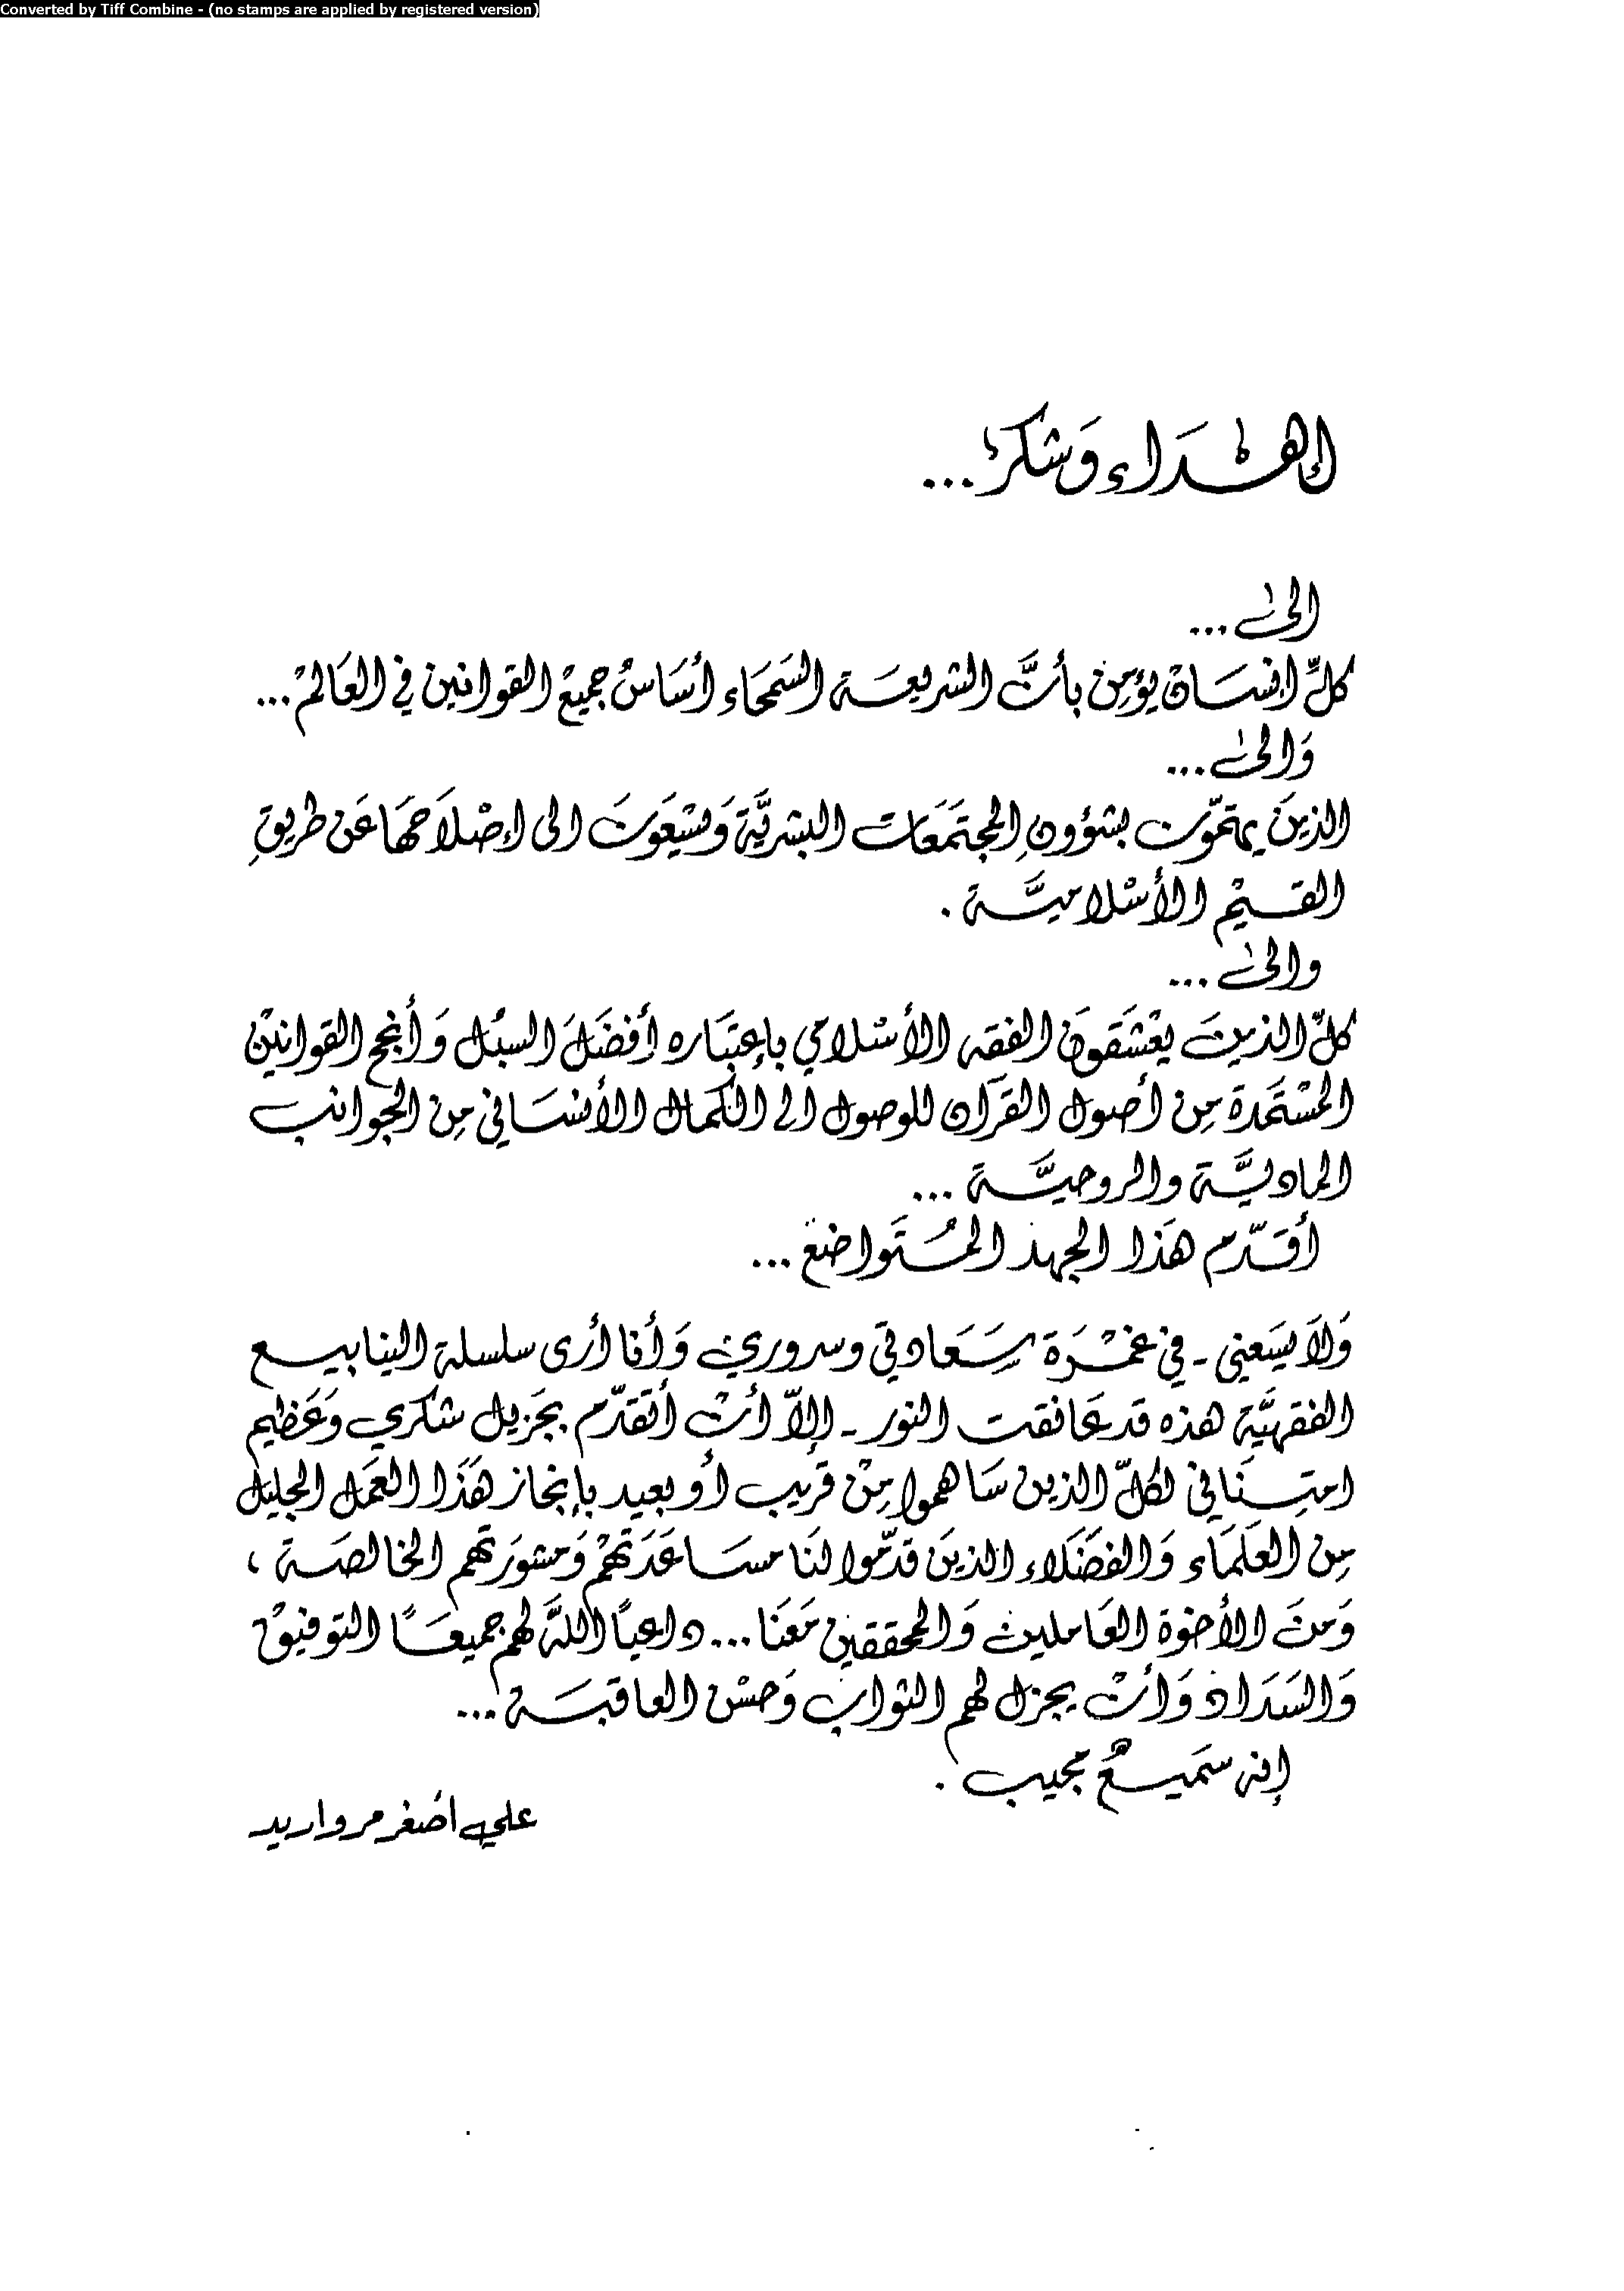 Converted by Tiff Combine - (no stamps are applied by registered version)
إهداء وشكر...
الى...
كلّ انسان يؤمن بأنَّ الشريعة السَمحَاء أسَاسُ جميعْ القوانين في العَالمْ...
وَالى...
الذينَ يهتمّون بشؤونِ المجتمَعَات البشريَّة وَيسْيَعَونَ الى إصْلاَحهَا عَن طريقِ
القيمْ الأسْلاميَّة .
والى...
كلّ الذينَ يعْشَقونَ الفقه الأسْلامي بإعتبَاره أفضَلَ السبُل وَأنجح القوانيْن
المسْتَمدة مِن أصول القرآن للوصول الى الكمال الأنسَاني مِن الجوانب
الماديَّة والروحيَّة ...
أقدّم هَذا الجهد المُتَواضع ...
وَلاَ يسَعني - في غمْرَة سَعَادتي وسروري وَأنا أرى سلسلة الينابيع
الفقهيَّة هذه قد عَانقت النور - إلاّ أنْ أتقدّم بجَزيل شكري وَعَظيم
امتِنَاني لكلّ الذين سَاهموا مِنْ قريب أو بعيد بإنجاز هَذَا العَمل الجليل
مِن العلَمَاء وَالفضَلاء الذينَ قدّموا لنَا مسَاعَدَتهمْ وَمشورَتهم الخالصَة ،
وَمنَ الأخوة العَاملين وَالمحققين مَعَنا... داعياً اللهَ لهم جميعَاً التوفيقْ
وَالسَدَاد وَأنْ يجزل لهم الثواب وَحسْن العاقبَة...
إنه سَميعٌ مجيب .
علي اصغر مرواريد